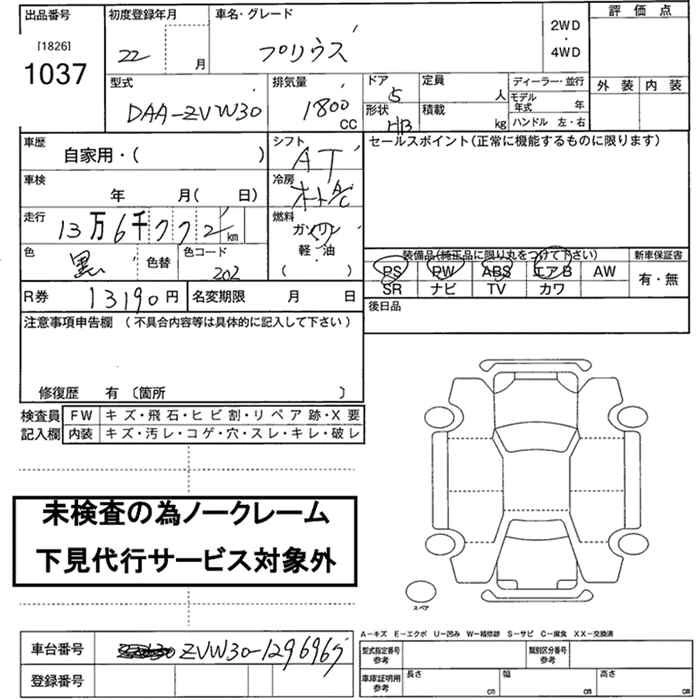 出品番号 初度登録年月 車名・グレード 評価点
[1826]
1037
22 月 プリウス
2WD
・
4WD
型式 排気量 ドア 定員 ディーラー・並行 外装 内装
DAA-ZVW30 1800 CC 5 人 モデル年式 年
形状 積載 ハンドル 左・右
HB kg
車歴 シフト セールスポイント(正常に機能するものに限ります)
自家用・( ) AT
車検 冷房
年 月( 日) オートA/C
走行 燃料
13万6千772km ガソリン
軽・油
( )
色 色替 色コード 装備品(純正品に限り丸をつけて下さい) 新車保証書
黒 202 PS PW ABS エアB AW 有・無
SR ナビ TV カワ
R券 13190円 名変期限 月 日 後日品
注意事項申告欄 (不具合内容等は具体的に記入して下さい)
修復歴 有 〔箇所 〕
検査員 FW キズ・飛石・ヒビ割・リペア跡・X要
記入欄 内装 キズ・汚レ・コゲ・穴・スレ・キレ・破レ
未検査の為ノークレーム
下見代行サービス対象外
スペア
A-キズ E-エクボ U-凹み W-補修跡 S-サビ C-腐食 XX-交換済
車台番号 ZVW30-1296965 型式指定番号 参考 類別区分番号 参考
登録番号 車庫証明用 参考 長さ cm 幅 cm 高さ cm